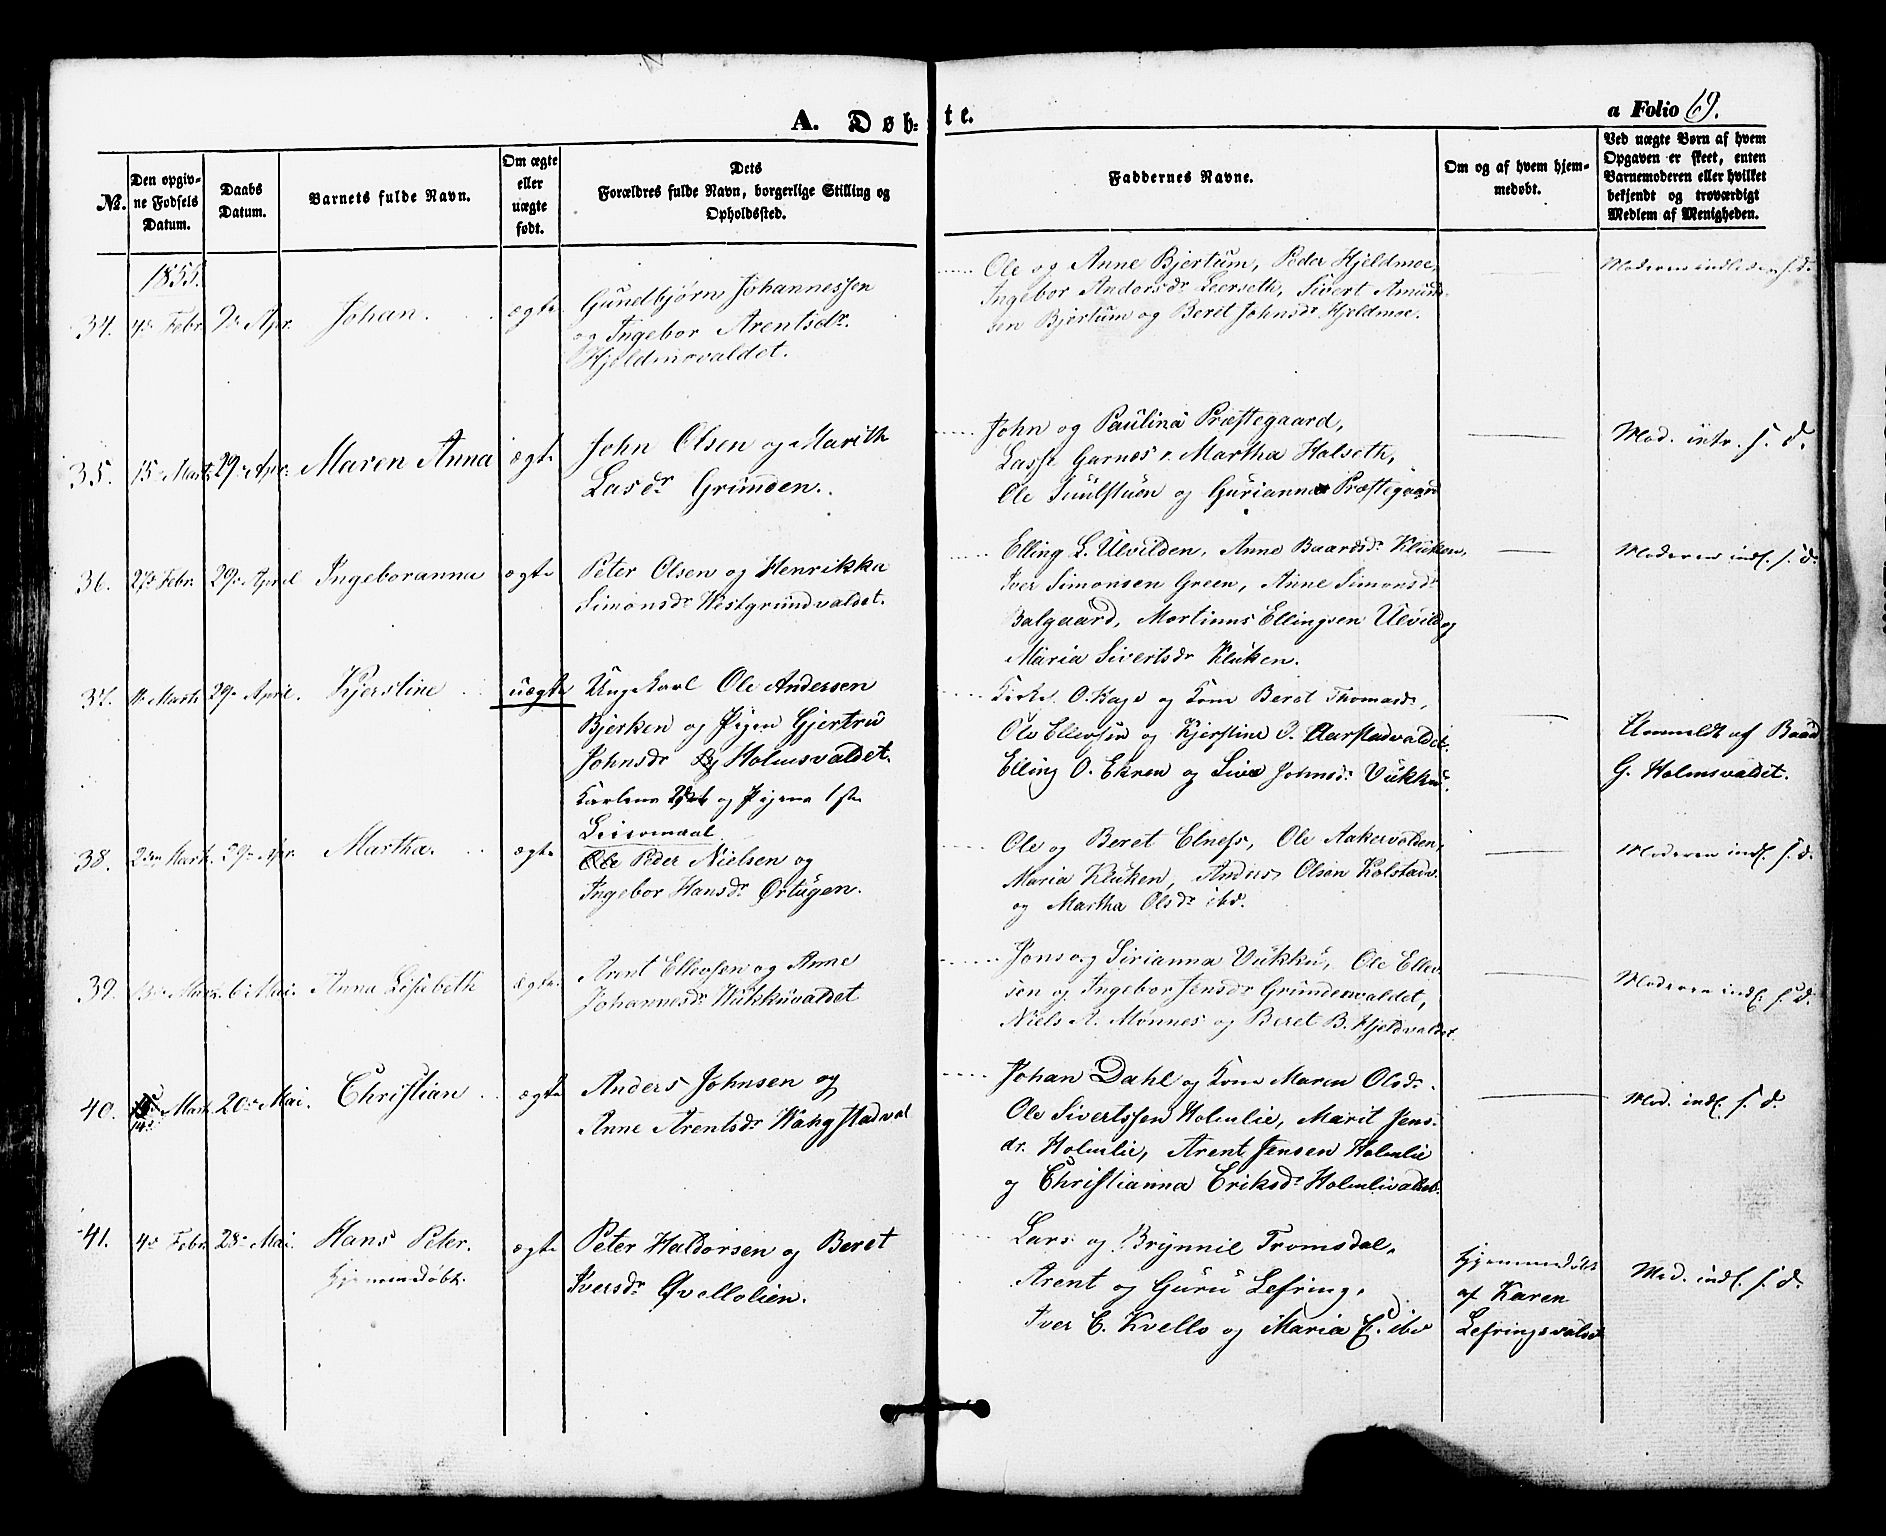 A. Døb-
te.
a Folio 69.
No.
Den opgiv-
ne Fødsels
Datum.
Daabs
Datum.
Barnets fulde Navn.
Om ægte
eller
uægte
født.
Dets
Forældres fulde Navn, borgerlige Stilling og
Opholdssted.
Faddernes Navne.
Om og af hvem hjem-
medøbt.
Ved uægte Børn af hvem
Opgaven er skeet, enten
Barnemoderen eller hvilket
bekjendt og troværdigt
Medlem af Menigheden.
1855.
34. 4de Febr. 9de Apr. Johan. ægte
Gundbjørn Johannessen
og Ingebor Arentsdr.
Hjeldmovaldet.
Ole og Anne Bjertum, Peder Hjeldmoe,
Ingebor Andersdr. Leerseth, Sivert Amund-
sen Bjertum og Beret Johnsdr. Hjeldmoe.
Moderen indleden s. d.
35. 15 Marts 29de Apr. Maren Anna ægte
John Olsen og Marith
Lasdr. Grunden.
John og Paulina Præstegaard,
Lasse Garnæs, Martha Halseth,
Ole Suulstuen og Gurianna Præstegaard
Mod. intr. s. d.
36. 27de Febr. 29de April Ingeboranna ægte
Peter Olsen og Henrikka
Simonsdr. Westgrundvaldet.
Elling L. Ulvilden, Anne Baardsdr. Kluken,
Iver Simonsen Green, Anne Simonsdr.
Balgaard, Mortinus Ellingsen Ulvild og
Maria Sivertsdr Kluken.
Moderen indl. s. d.
37. Marts 29de April. Kjerstine uægte
Ungekarl Ole Andersen
Bjerken og Pigen Gjertru
Johnsdr. Holmsvaldet.
Karlens 2det og Pigens 1ste
Leiermaal
O. Kage og Kone Beret Thomasdr.,
Ole Ellevsen og Kjerstine O. Aarstadvaldet.
Elling O. Ekren og Siva Johnsdr. Vukku.
Anmeldt af Baard
G. Holmsvaldet.
38. 2den Marts. 29de Apr. Martha. ægte
Ole Peder Nielsen og
Ingebor Hansdr. Ørtugen.
Ole og Beret Elness, Ole Aakervolden,
Maria Kluken, Anders Olsen Kolstad
og Martha Olsdr. ibd.
Moderen indl. s. d.
39. Marts. 6 Mai. Anna Lisebeth ægte.
Arent Ellevsen og Anne
Johannesdr. Vukkuvaldet
Jens og Sirianna Vukku, Ole Ellev-
sen og Ingebor Jensdr. Grundenvaldet,
Niels A. Mønnes og Beret B. Hjeldvaldet.
Moderen indl. s. d.
40. Marts. 20de Mai. Christian. ægte
Anders Johnsen og
Anne Arentsdr. Haugstadval
Johan Dahl og Kone Maren Olsdr.
Ole Sivertssen Holmlie, Marit Jens-
dr. Holmlie, Arent Jensen Holmlie
og Christianna Eriksdr. Holmlivaldet.
Mod. indl. s. d.
41. 4de Febr. 28de Mai. Hans Peter. ægte
hjemmedøbt.
Peter Haldorsen og Beret
Iversdr. Qvellolien.
Lars og Brynnil Tromsdal,
Arent og Guru Lefring,
Iver C. Kvello og Maria E. ibd
Hjemmedøbt
af Karen
Lefringsvaldet
Mod. indl. s. d.